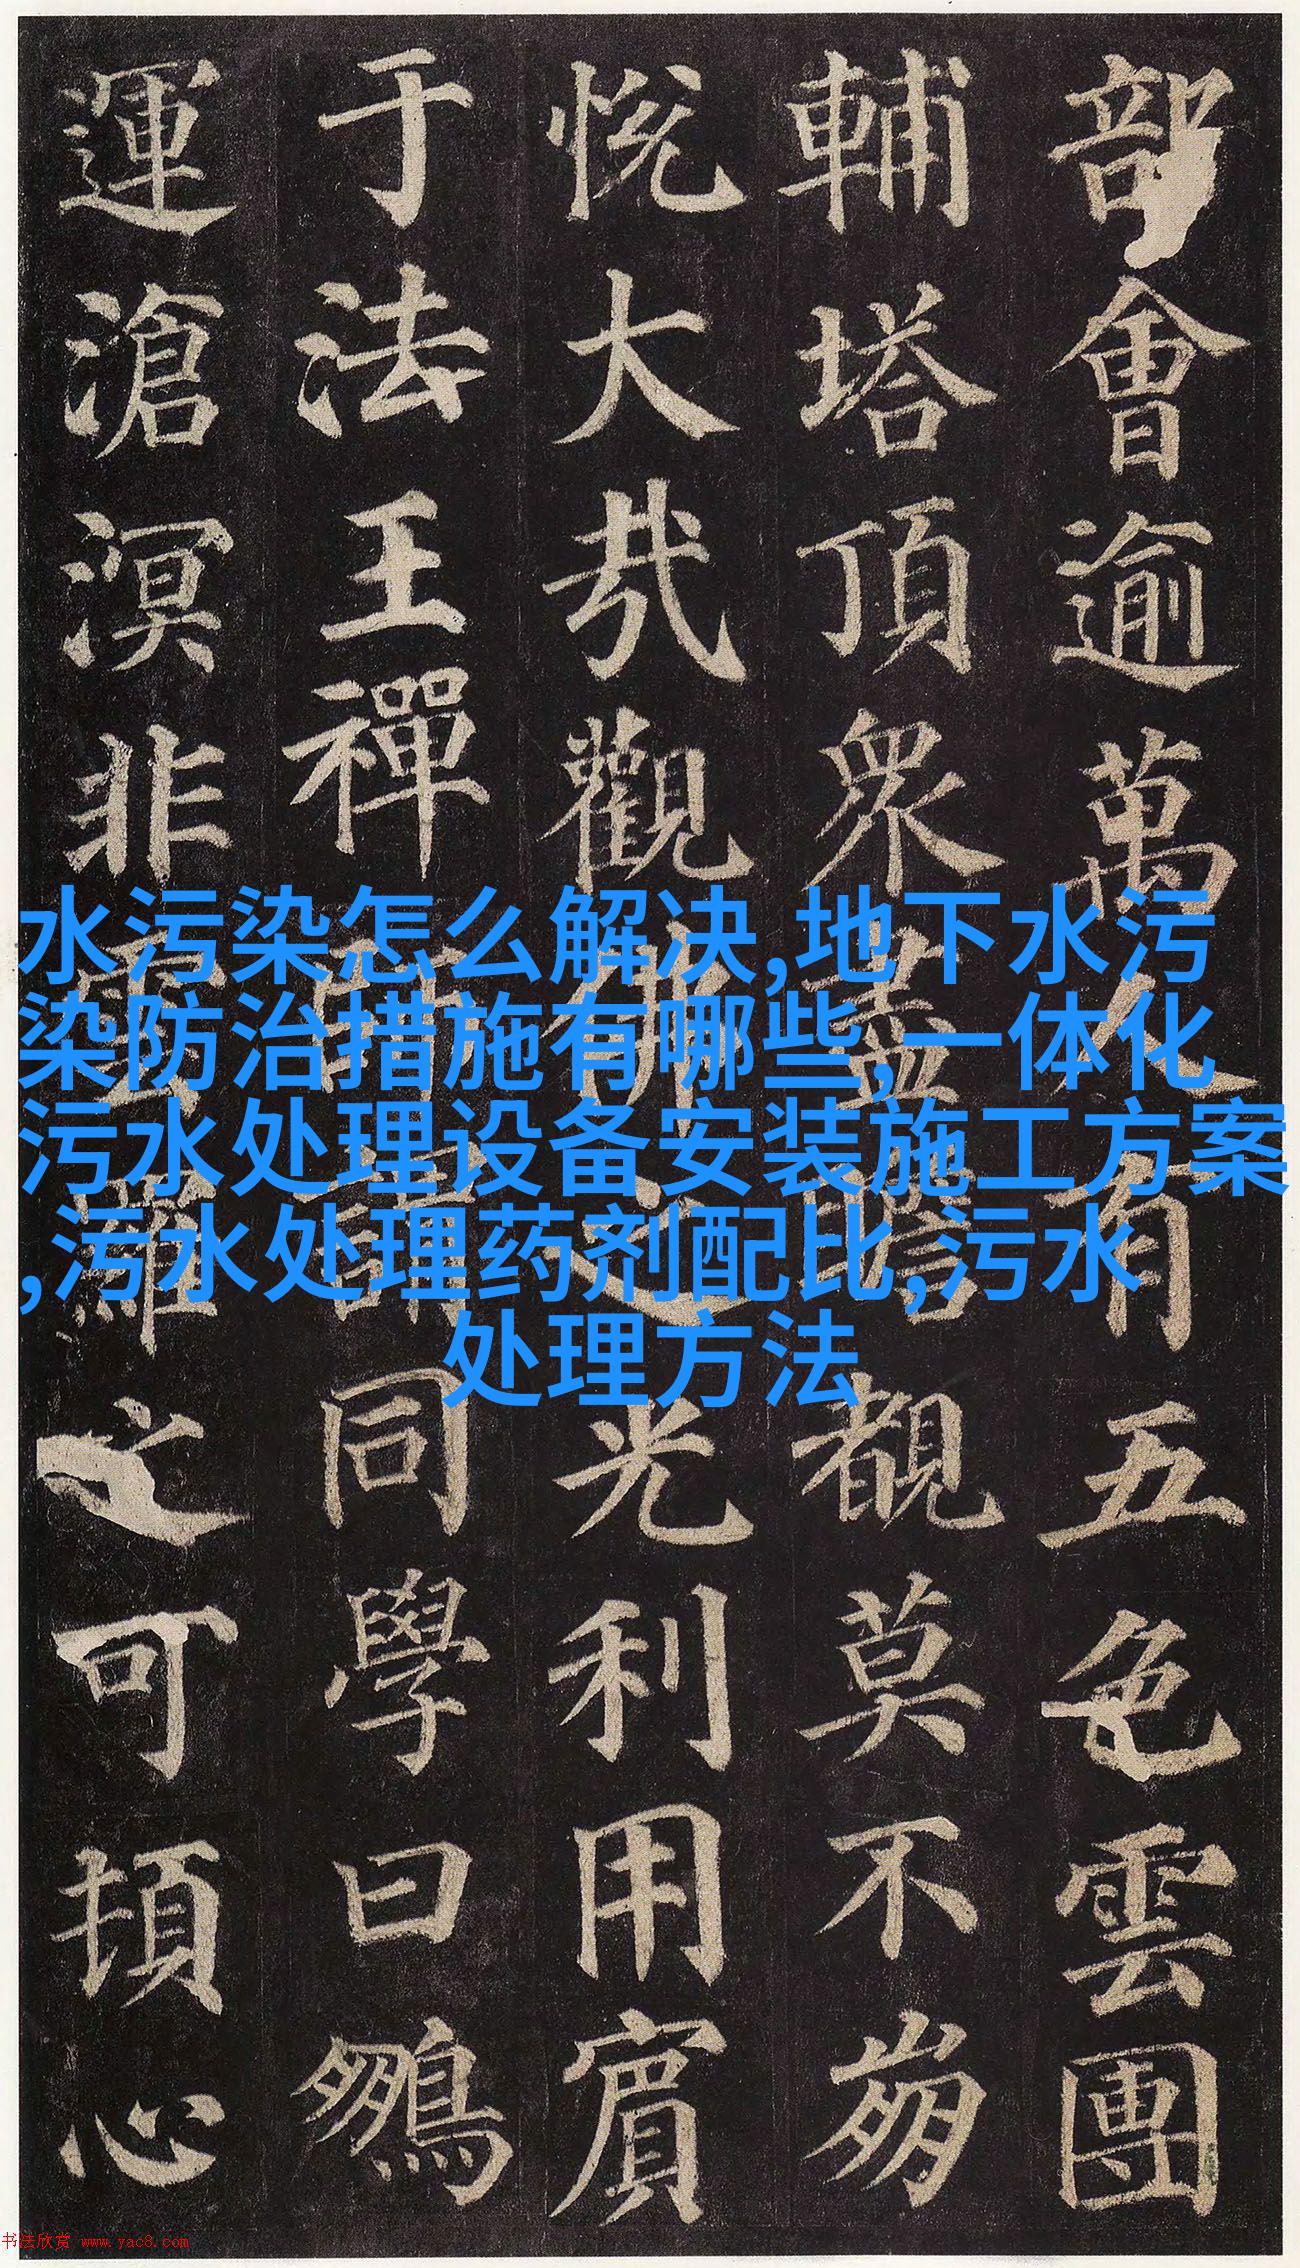 部會逾萬人有五色雲團
輔塔頂眾盡瞻覩莫不崩
悅大哉觀佛之光利用賓
于法王禪師謂同學曰鵬
運滄溟非雲羅之可頓心
水污染怎么解决,地下水污
染防治措施有哪些,一体化
污水处理设备安装施工方案
,污水处理药剂配比,污水
处理方法
书法欣赏 www.yac8.com